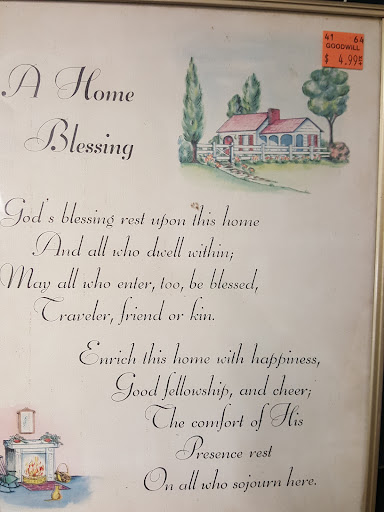 41 64
GOODWILL
$ 4.99
A Home
Blessing
God's blessing rest upon this home
And all who dwell within;
May all who enter, too, be blessed,
Traveler, friend or kin.
Enrich this home with happiness,
Good fellowship, and cheer;
The comfort of His
Presence rest
On all who sojourn here.